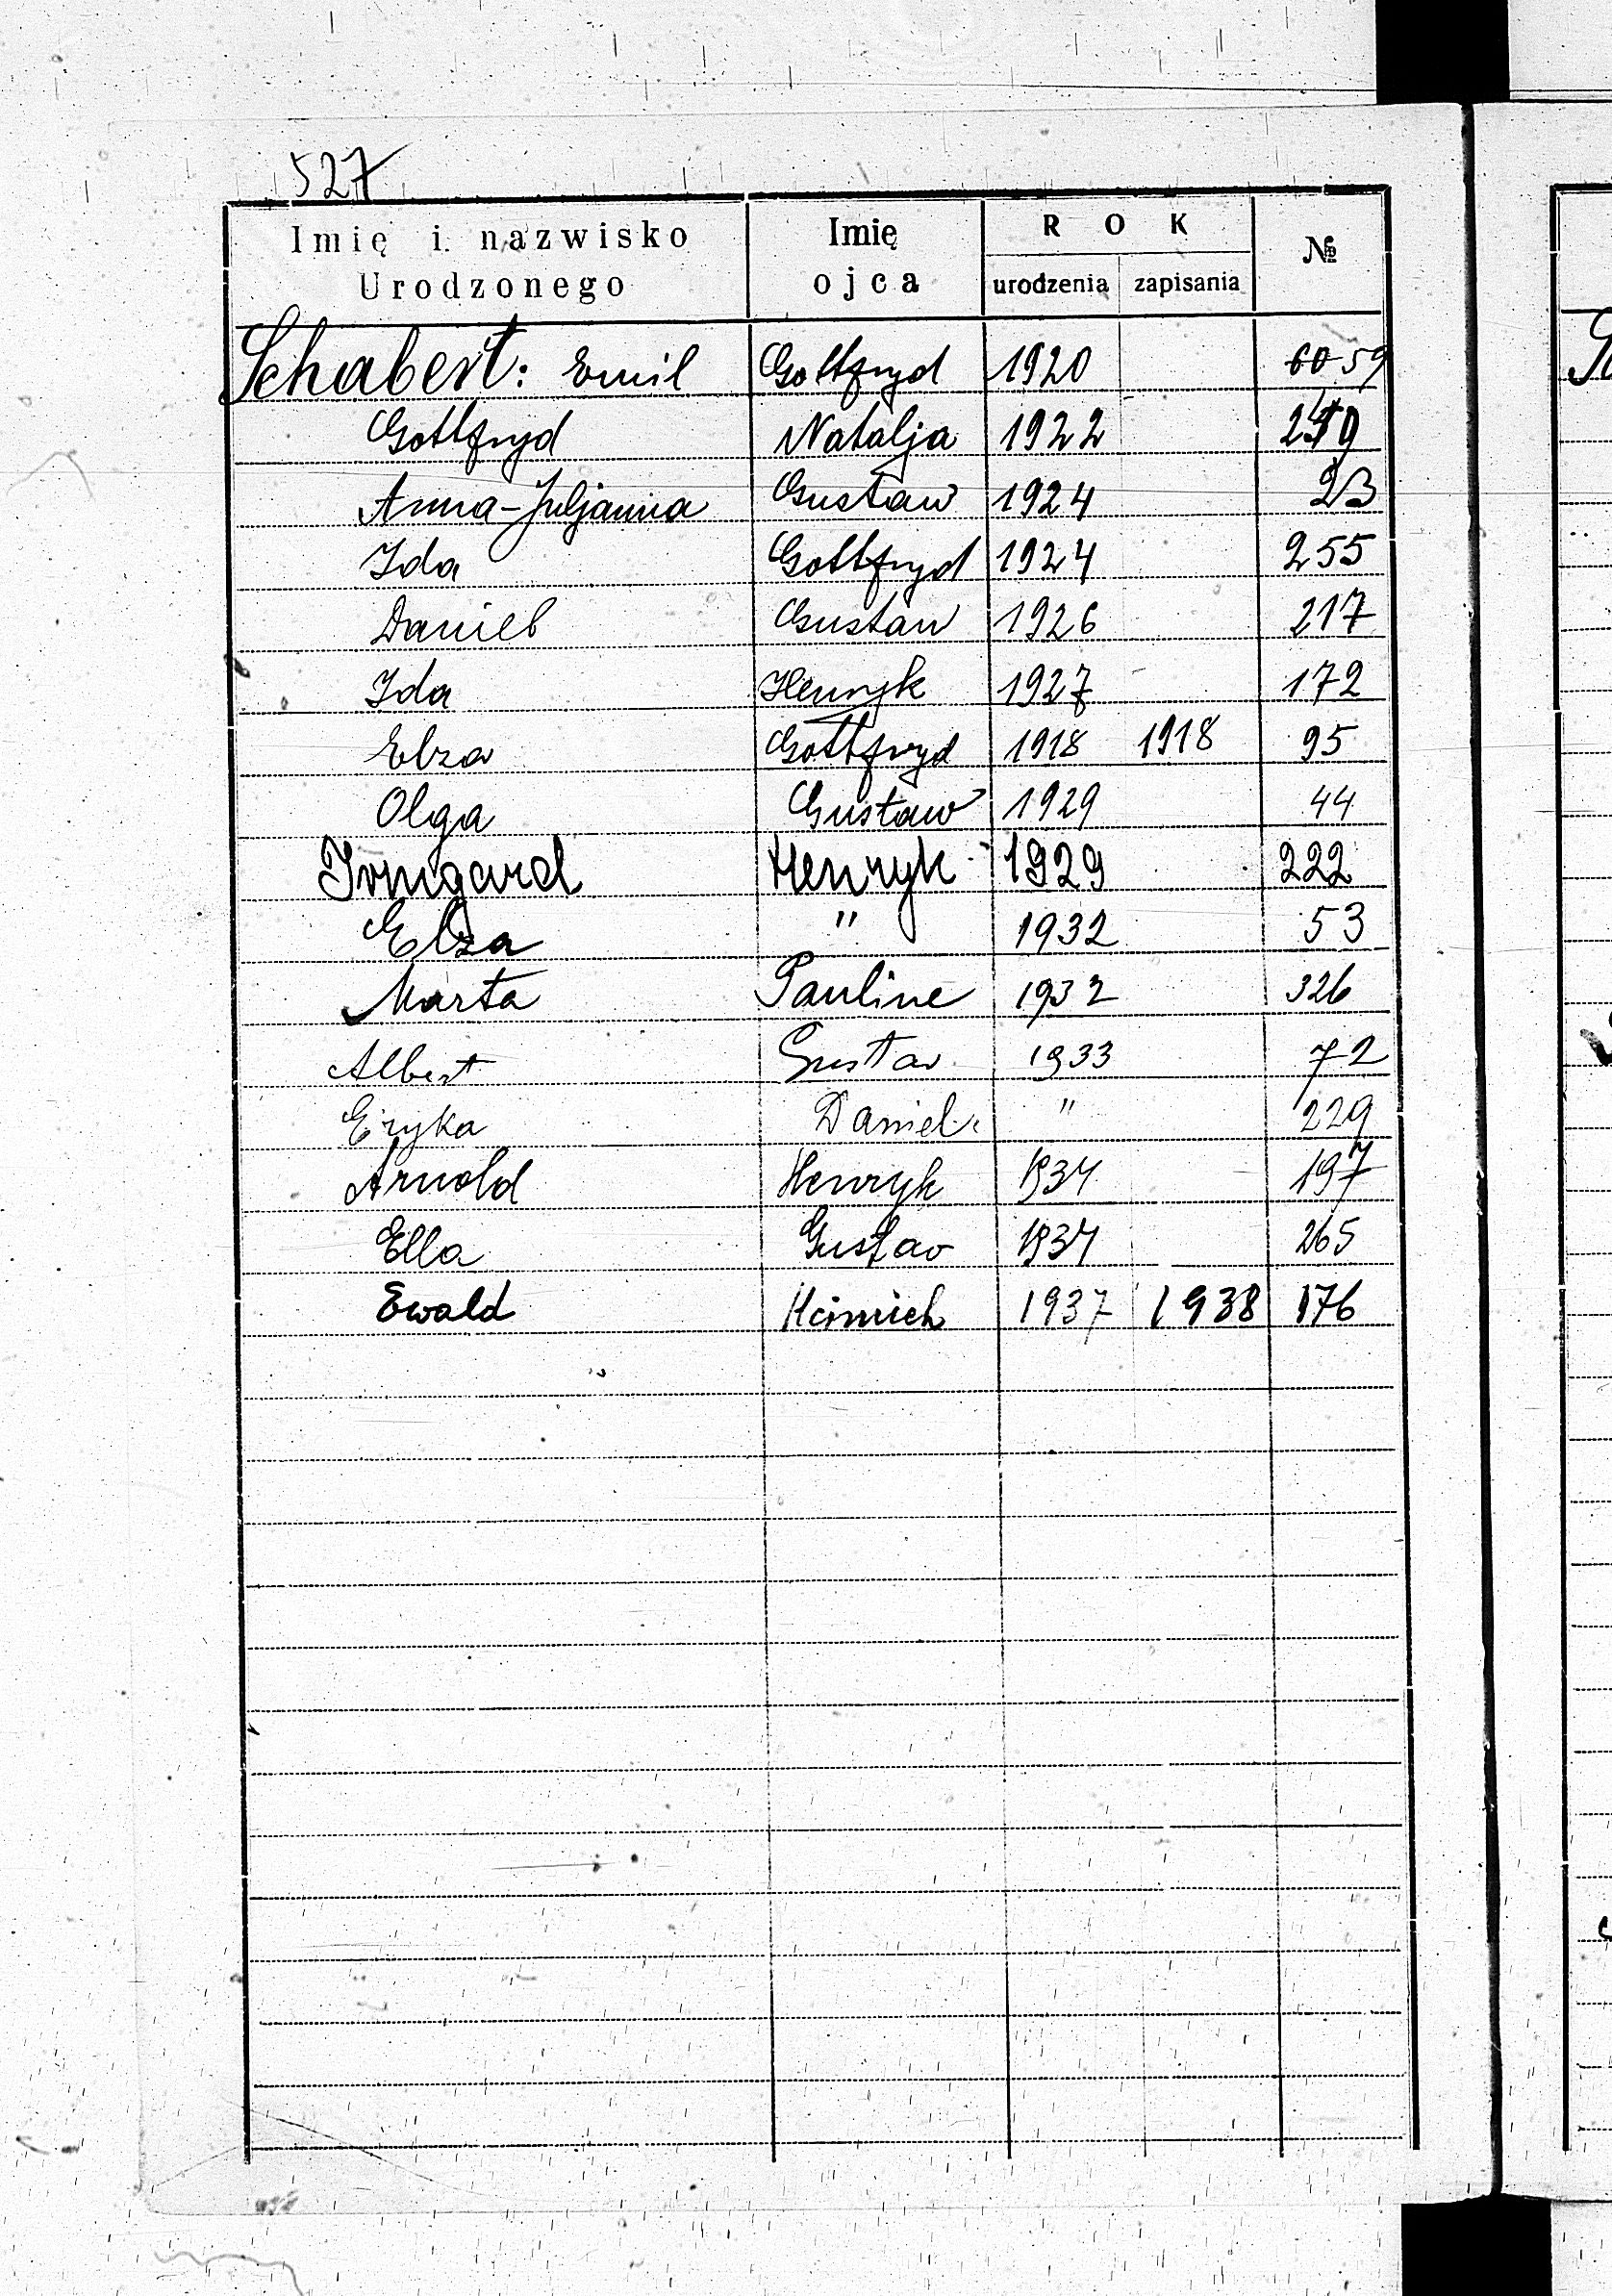 527
Imię i nazwisko Urodzonego Imię ojca ROK urodzenia zapisania №
Schabert: Emil Gottfryd 1920 60 59
Gottfryd Natalja 1922
Anna-Juljanna Gustaw 1924 23
Ida Gottfryd 1924 255
Daniel Gustaw 1926 217
Ida Henryk 1927 172
Elza Gottfryd 1918 1918 95
Olga Gustaw 1929 44
Irmgard Henryk 1929 222
Elza " 1932 53
Marta Pauline 1932 326
Albert Gustav 1933 72
Eryka Daniel. " 229
Arnold Henryk 1934 197
Ella Gustav 1934 265
Ewald Heinrich 1937 1938 176